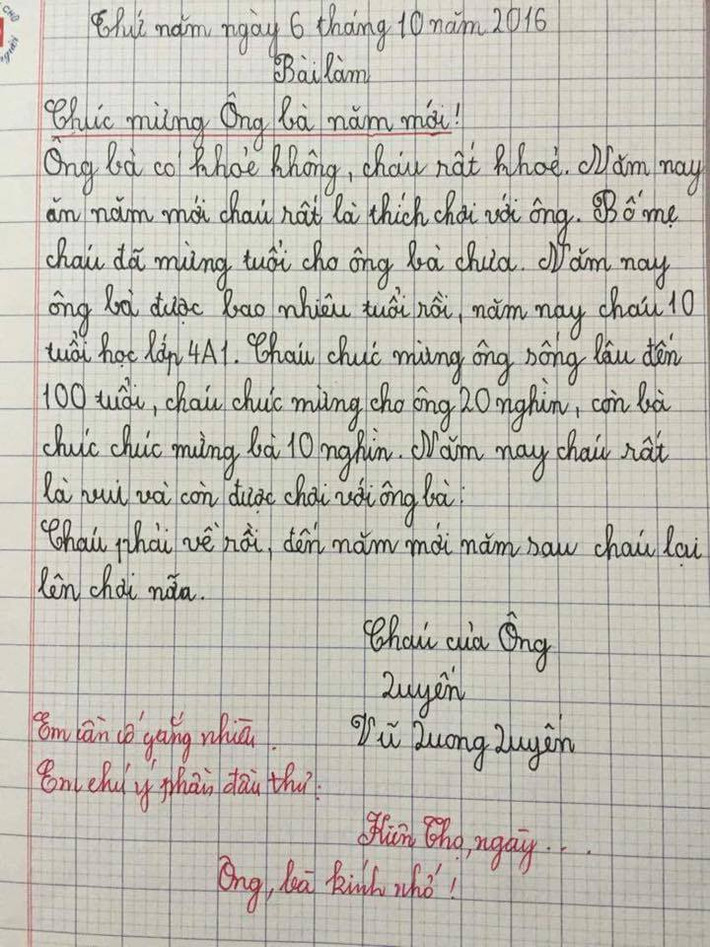 Thứ năm ngày 6 tháng 10 năm 2016
Bài làm
Chúc mừng Ông bà năm mới!
Ông bà có khoẻ không, cháu rất khoẻ. Năm nay
ăn năm mới cháu rất là thích chơi với ông. Bố mẹ
cháu đã mừng tuổi cho ông bà chưa. Năm nay
ông bà được bao nhiêu tuổi rồi, năm nay cháu 10
tuổi học lớp 4A1. Cháu chúc mừng ông sống lâu đến
100 tuổi, cháu chúc mừng cho ông 20 nghìn, còn bà
chúc chúc mừng bà 10 nghìn. Năm nay cháu rất
là vui và còn được chơi với ông bà:
Cháu phải về rồi, đến năm mới năm sau cháu lại
lên chơi nữa.
Cháu của Ông
Quyến
Vũ Quong Quyến
Em cần cố gắng nhiều.
Em chú ý phần đầu thư:
Hiền Thọ, ngày...
Ông, bà kính nhớ!